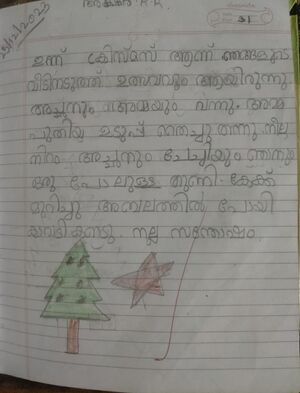 25/12/2023
31
ഇന്ന് ക്രിസ്മസ് ആണ് ഞങ്ങളുടെ
വീടിനടുത്ത് ഉത്സവവും ആയിരുന്നു
അച്ചനും അമ്മയും വന്നും അമ്മ
പുതിയ ഉടുപ്പ് തൈച്ചു തന്നു നീല
നിറം അച്ചനും ചേച്ചിയും ഞാനും
ഒരു പോലുള്ള തുണി കേക്ക്
മുറിച്ചു അമ്പലത്തിൽ പോയി
കാവടി കണ്ടു നല്ല സന്തോഷം